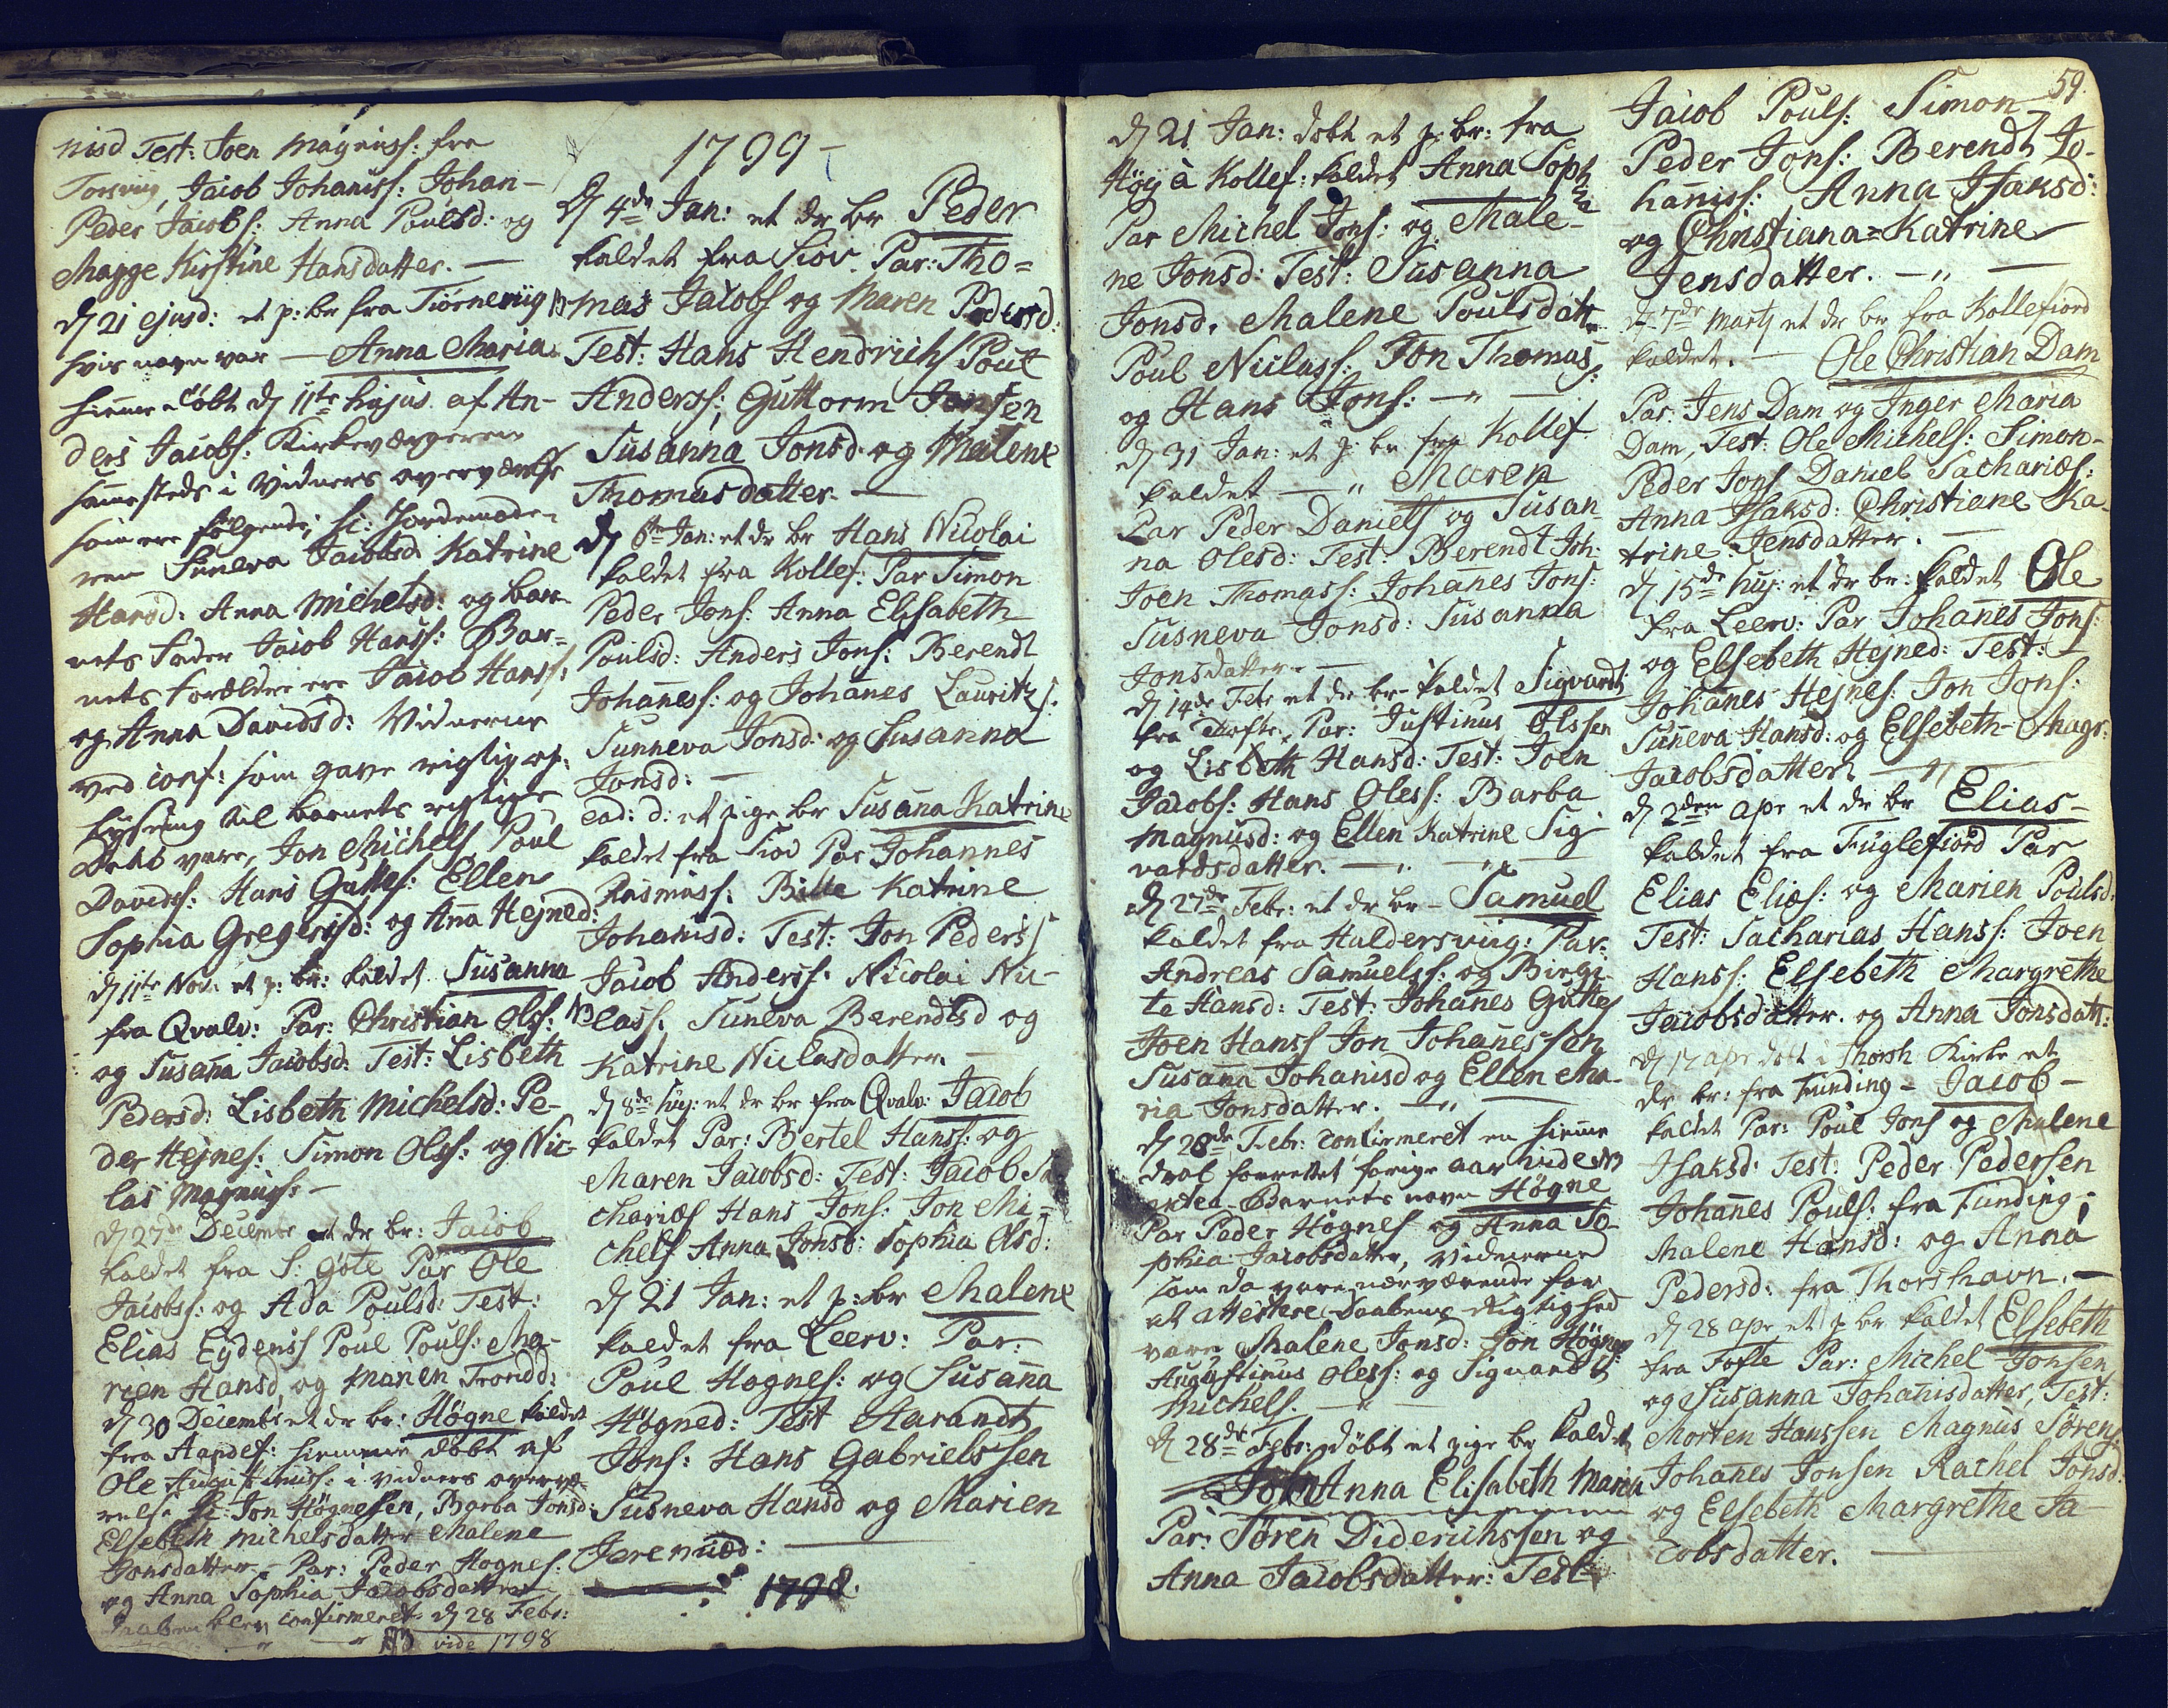 nisd Test: Joen Magnuss: fra
Torsvig, Jacob Johaniss: Johan-
Peder Jacobs: Anna Poulsd: og
Magge Kirstine Hansdatter. —
D 21 ejusd: et p: br fra Tiørneviig
hvis navn var — Anna Maria
hiemme døbt d 11te hujus af An-
ders Jacobs: Kirkeværgeren
sammesteds i Vidners overværelse
som ere følgende, sc: Jordemode-
ren Suneva Jacobsd Katrine
Hansd: Anna Michelsd: og bar-
nets Fader Jacob Hanss: Bar-
nets Forældre ere Jacob Hanss:
og Anna Davidsd: Vidnerne
ved conf: som gave rigtig op-
lysning til barnets rigtige
daab vare, Jon Michels Poul
Davids: Hans Guttes: Ellen
Sophia Gregersd: og Ana Hejned:
D 11te Nov: et p: br: kaldet Susanna
fra Qvalv: Par: Christian Olss:
og Susana Jacobsd: Test: Lisbeth
Pedersd: Lisbeth Michelsd: Pe-
der Hejnes: Simon Olss: og Nic-
las Magnuss: —
D 27de Decembr et dr br: Jacob
kaldet fra S: Gøte Par Ole
Jacobss: og Ada Poulsd: Test:
Elias Eydenss Poul Pouls: Ma-
rien Hansd og Marien Trondd:
D 30 Decembr et dr br: Høgne kaldet
fra Handef: hiemme døbt af
Ole Augustinuss: i vidners overvæ-
relse sc: Jon Høgnessen, Barba Jonsd:
Elsebeth Michelsdatter Malene
Jonsdatter. Par: Peder Høgnes:
og Anna Sophia Jacobsdatter
Daaben blev confirmeret d 28 Febr:
NB vide 1798
1799 —
D 4de Jan: et dr br Peder
kaldet fra Siov. Par: Tho=
mas Jacobs og Maren Pedersd:
Test: Hans Hendrichs Poul
Anderss: Guttorm Jonsen
Susanna Jonsd. og Malene
Thomasdatter. —
D 6te Jan: et dr br Hans Nicolai
kaldet fra Kollef: Par Simon
Peder Jons: Anna Elisabeth
Poulsd: Anders Jons: Berendt
Johaness: og Johanes Lauritzs:
Sunneva Jonsd: og Susanna
Jonsd: —
ead: d: et pige br Susana Katrine
kaldet fra Siov Par Johannes
Rasmuss: Bille Katrine
Johanisd: Test: Jon Peders
Jacob Anderss: Nicolai Nic-
lass: Suneva Berendtsd og
Katrine Niclasdatter. —
D 8de huj: et dr br fra Qvalv: Jacob
kaldet Par: Bertel Hanss: og
Maren Jacobsd: Test: Jacob Sa-
charies Hans Jons: Jon Mi-
chels Anna Jonsd: Sophia Olsd:
D 21 Jan: et p: br Malene
kaldet fra Leerv: Par:
Poul Hognes: og Susana
Høgned: Test Harandt
Jons: Hans Gabrielssen
Susneva Hansd og Marien
Jeremiæd: —
1798.
D 21 Jan: døbt et p: br: fra
Høj à Kollef: kaldet Anna Soph
Par Michel Jons: og Male-
ne Jonsd: Test: Susanna
Jonsd. Malene Poulsdatr
Poul Niclass: Jon Thomas:
og Hans Jons: —
D 31 Jan: et p: br fra Kollef.
kaldet — Maren
Par Peder Daniels og Susan-
na Olesd: Test: Berendt Joh:
Joen Thomass: Johanes Jons:
Susneva Jonsd: Susanna
Jonsdatter. —
D 14de Febr et dr br- kaldet Sigvardt
fra Tofte, Par: Justinus Olssen
og Lisbeth Hansd: Test: Joen
Jacobs: Hans Oless: Barba
Magnusd: og Ellen Katrine Sig-
vardsdatter. —
D 27de Febr: et dr br — Samuel
kaldet fra Haldersvig: Par:
Andreas Samuelss: og Birgi-
te Hansd: Test: Johanes Guttes
Joen Hanss Jon Johanessen
Susana Johanisd og Ellen Ma-
ria Jonsdatter. —
D 28de Febr: confirmeret en hieme
daab forrettet forige aar vide NB
antea Barnets navn Høgne
Par Peder Høgnes og Anna So-
phia Jacobsdatter, Vidnerne
som da vare nærværende for
at attestere Daabens Rigtighed
vare Malene Jonsd: Jon Høgnes:
Augustinus Oless: og Sigvardt
Michels. —
D 28de Febr: døbt et pige br kaldet
Anna Elisabeth Maria
Par: Søren Diderichssen og
Anna Jacobsdatter: Test:
59.
Jacob Pouls: Simon
Peder Jons: Berendt Jo-
haniss: Anna Isaksd:
og Christiana=Katrine
Jensdatter. —
D 7de Martj et dr br fra Kollefiord
kaldet. — Ole Christian Dam
Par: Jens Dam og Inger Maria
Dam, Test: Ole Michels: Simon-
Peder Jons Daniel Sacharies:
Anna Isaksd: Christiane Ka-
trine Jensdatter. —
D 15de huj: et dr br: kaldet Ole
fra Leerv: Par Johanes Jons:
og Elsebeth Hejned: Test:
Johanes Hejnes: Jon Jons:
Suneva Hansd: og Elsebeth-Magr:
Jacobsdatter. —
D 2den Apr et dr br Elias —
kaldet fra Fuglefiord Par
Elias Elias: og Marien Poulsd:
Test: Sacharias Hanss: Joen
Hanss: Elsebeth Margrethe
Jacobsdatter. og Anna Jonsdatt:
D 17 Apr døbt i Thorsh Kirke et
dr br: fra Funding — Jacob —
kaldet Par: Poul Jons og Malene
Isaksd: Test: Peder Pedersen
Johanes Pouls: fra Funding;
Malene Hansd: og Anna
Pedersd: fra Thorshavn. —
D 28 Apr et p br kaldet Elsebeth
fra Tofte Par: Michel Jonsen
og Susanna Johanisdatter, Test:
Morten Hanssen Magnus Sørens
Johanes Jonsen Rachel Jonsd.
og Elsebeth Margrethe Ja-
cobsdatter. —